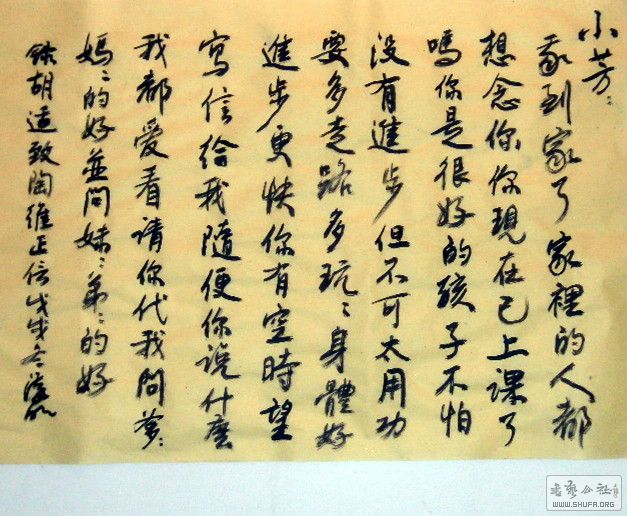 小芳：
我到家了家裡的人都
想念你你現在已上課了
嗎你是很好的孩子不怕
没有進步但不可太用功
要多走路多玩：身體好
進步更快你有空時望
寫信给我隨便你说什麽
我都爱看請你代我問爹：
媽：的好並問妹：弟：的好
錄胡適致陶維正信戊戌冬
WWW.SHUFA.ORG